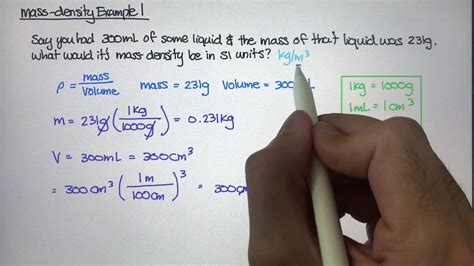 mass-density Example 1
Say you had 300mL of some liquid & the mass of that liquid was 231g.
What would it's mass density be in SI units? kg/m³
ρ = mass/volume mass = 231g volume = 300mL
1kg = 1000g
1mL = 1cm³
m = 231g (1kg/1000g) = 0.231kg
V = 300mL = 300cm³
= 300cm³ (1m/100cm)³ = 300cm